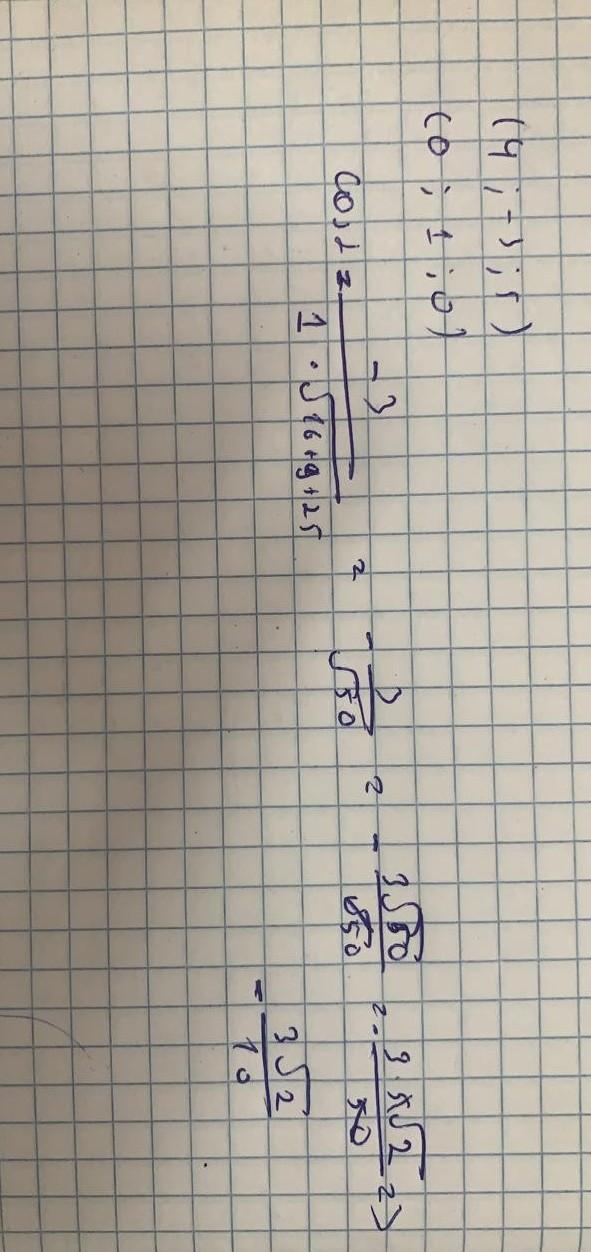 (4 ; -3 ; 5)
(0 ; 1 ; 0)
cos α = -3 / (1 · √16+9+25) = -3/√50 = - 3√50/50 = - 3·5√2/50 =>
- 3√2/10